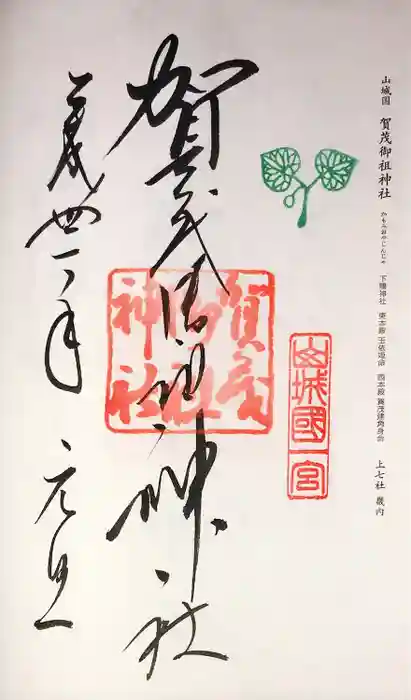 山城國 賀茂御祖神社 かもみおやじんじゃ 下鴨神社 東本殿 玉依媛命 西本殿 賀茂建角身命 上七社 畿内
山城國一宮
賀茂御祖神社
賀茂御祖神社
元旦